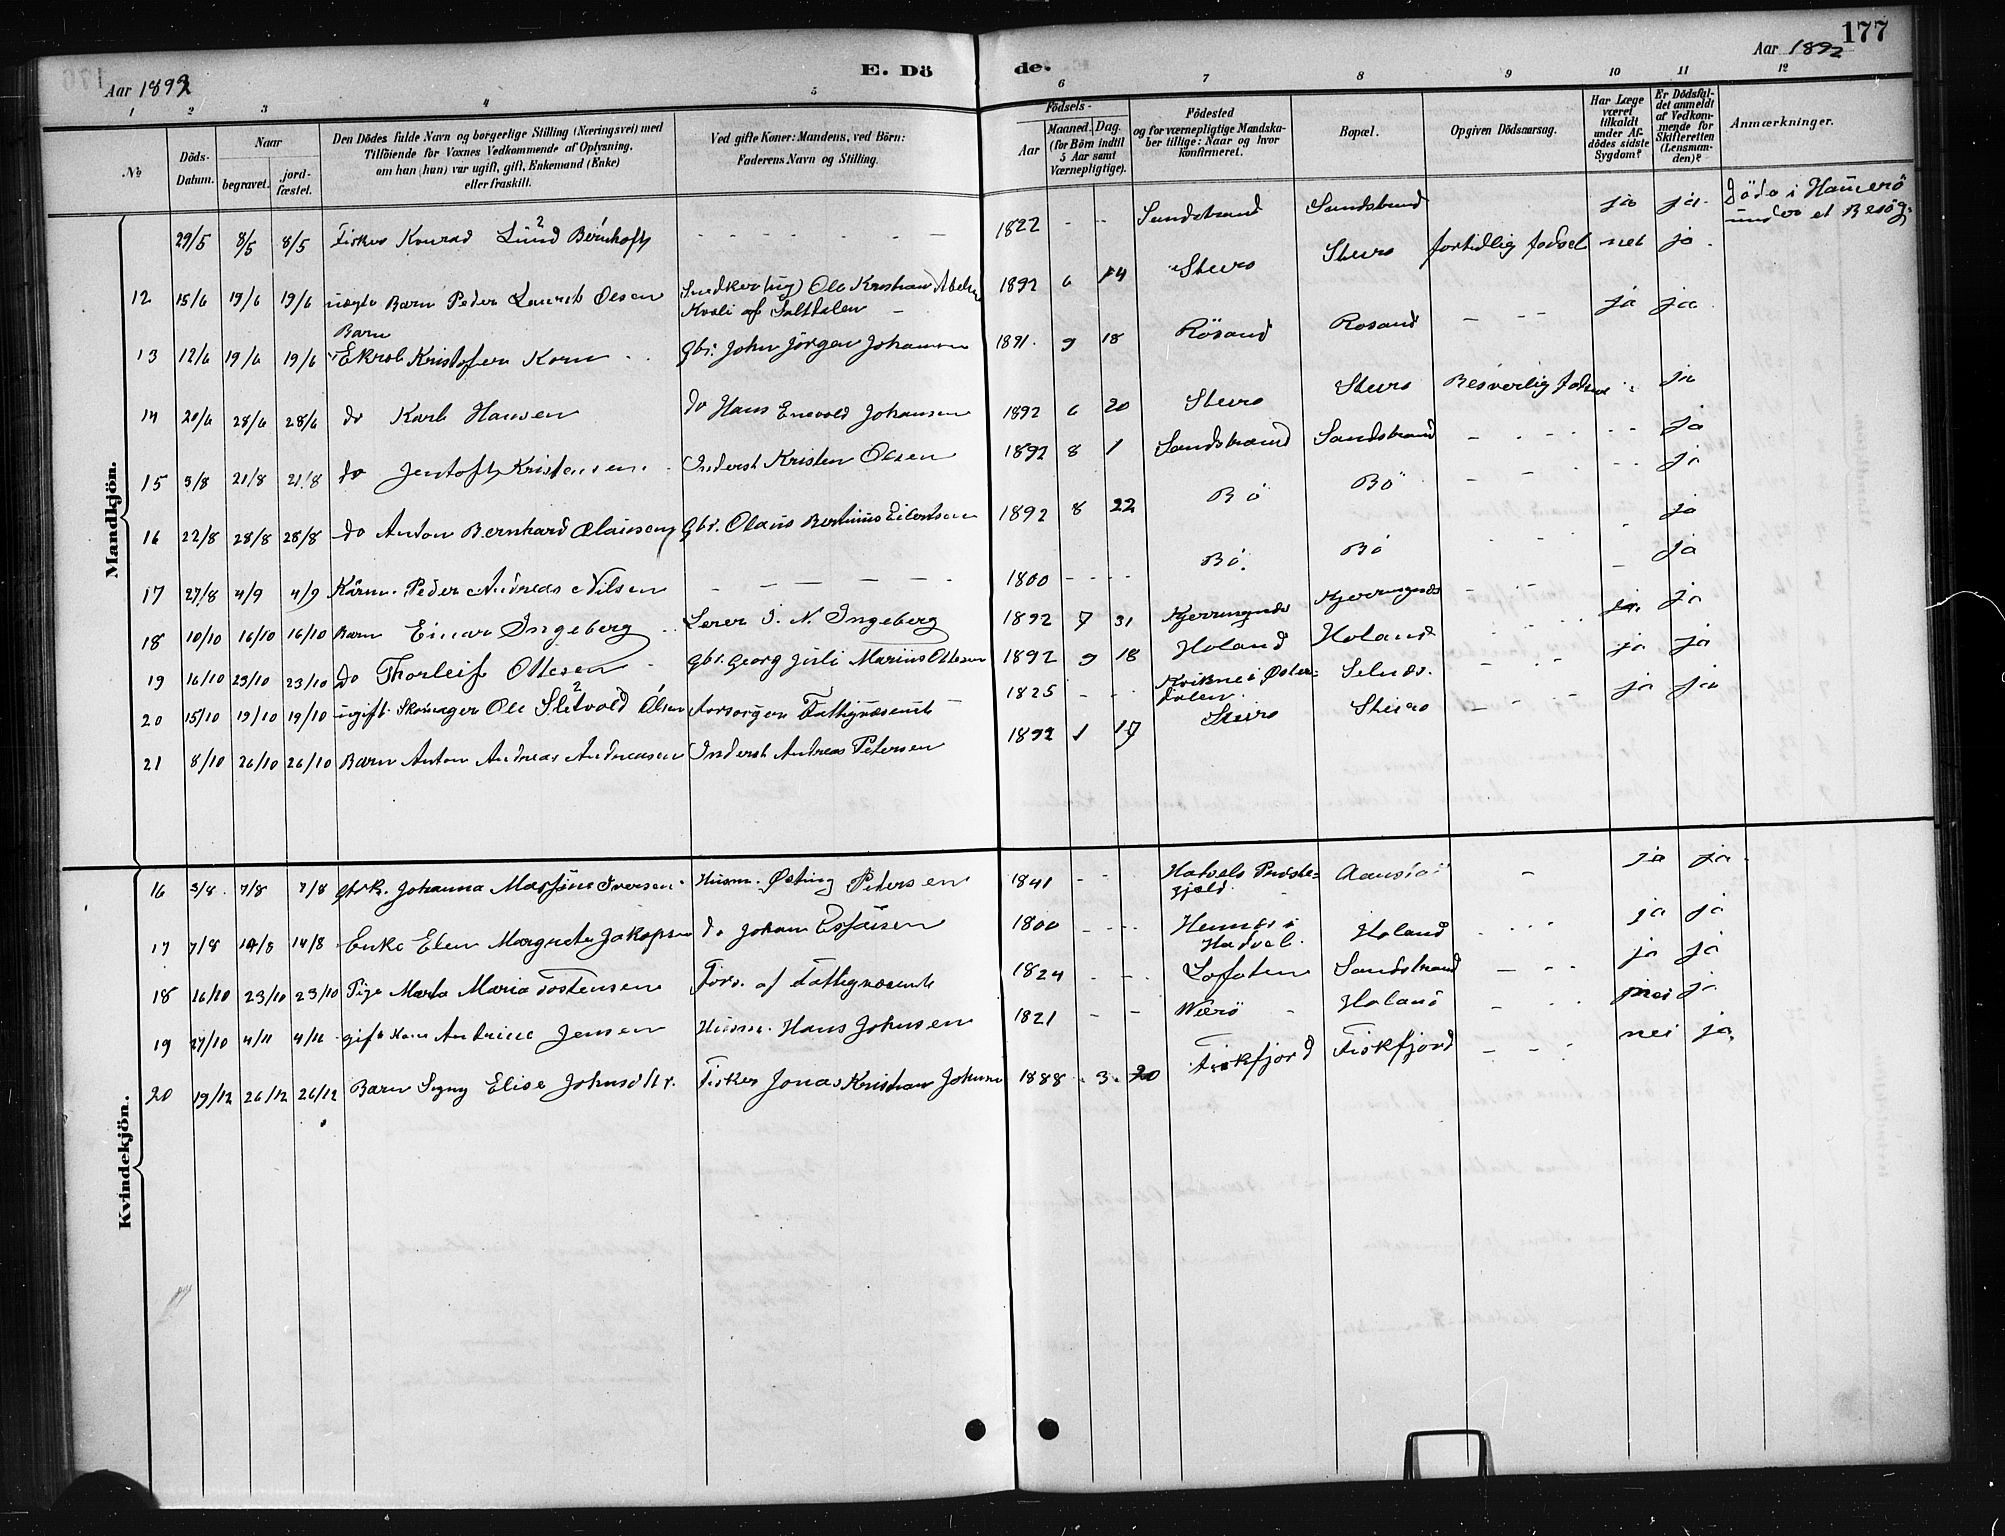 177
Aar 1892
E. Döde.
Aar 1892
1 2 3 4 5 6 7 8 9 10 11 12
№
Döds-Datum.
Naar
begravet.
jord-fæstet.
Den Dödes fulde Navn og borgerlige Stilling (Næringsvei) med
Tilföiende for Voxnes Vedkommende af Oplysning,
om han (hun) var ugift, gift, Enkemand (Enke)
eller fraskilt.
Ved gifte Koner: Mandens, ved Börn:
Faderens Navn og Stilling.
Födsels-
Aar
Maaned. Dag.
(for Börn indtil
5 Aar samt
Værnepligtige).
Födested
og for værnepligtige Mandska-
ber tillige: Naar og hvor
konfirmeret.
Bopæl.
Opgiven Dödsaarsag.
Har Læge
været
tilkaldt
under Af-
dödes sidste
Sygdom?
Er Dödsfal-
det anmeldt
af Vedkom-
mende for
Skifteretten
(Lensman-
den)?
Anmærkninger.
Mandkjön.
29/5 8/5 8/5 Fisker Konrad Lund Bernhoft - - - 1822 - - Sandstrand Sandstrand ja ja. Döde i Hameró under et Besög.
12 15/6 19/6 19/6 uægte Barn Peder Laurits Olsen Snedker (ug) Ole Kristian Kvali af Saltdalen 1892 6 14 Steiro Steiro fortidlig fødsel nei ja.
13 12/6 19/6 19/6 Barn Ekrol Kristofer Korn Gbr. John Jörgen Johansen 1891 9 18 Rösand Rosand - - - ja ja.
14 20/6 28/6 28/6 do Karl Hansen do Hans Enevold Johansen 1892 6 20 Steiro Steiro Besverlig fødsel ja
15 3/8 21/8 21/8 do Jentoft Kristensen Inderst Kristen Olsen 1892 8 1 Sandstrand Sandstrand - - ja
16 22/8 28/8 28/8 do Anton Bernhard Olausen Gbr. Olaus Bertinus Eilertsen 1892 8 22 Bö Bö - - ja
17 27/8 4/9 4/9 Kårm. Peder Andreas Nilsen - - - 1800 - - Bö. Bö - ja
18 10/10 16/10 16/10 Barn Einar Ingeberg Lerer I. N. Ingeberg 1892 7 31 Kjerringnes Kjerringnes - - ja
19 16/10 23/10 23/10 do Thorleif Ottesen Gbr. Georg Juli Marius Ottesen 1892 9 18 Holand Holand - - ja. ja
20 15/10 19/10 19/10 ugift Skomager Ole Sletvold Olsen Forsorgen Fattigvæsenet 1825 - - Kvikne i Österdalen. Selnes. - - ja ja
21 8/10 26/10 26/10 Barn Anton Andreas Andreasen Inderst Andreas Petersen 1892 1 17 Steiro Steiro - - ja ja
Kvindekjön.
16 3/8 7/8 7/8 Johanna Iversen Husm. Østing Petersen 1841 - - Hatsels Prestegjæld - ja ja
17 7/8 14/8 14/8 Enke Elen Margrete Jakopsen do Johan Esjasen 1800 - - Hadsel. Holand ja ja
18 16/10 23/10 23/10 Pige Marta Maria Tostensen Fors. af Fattigvæsenet 1824 - - Lofoten Sandstrand - - ja ja
19 27/10 4/11 4/11 gift Kone Andrine Jensen Husm. Hans Johnsen 1821 - - Værö Holand - - nei ja
20 19/12 26/12 26/12 Barn Signy Elise Johnsdtr. Fisker Jonas Kristian Johnsen 1888 3 20 Fiskfjord Fiskfjord - - nei ja.